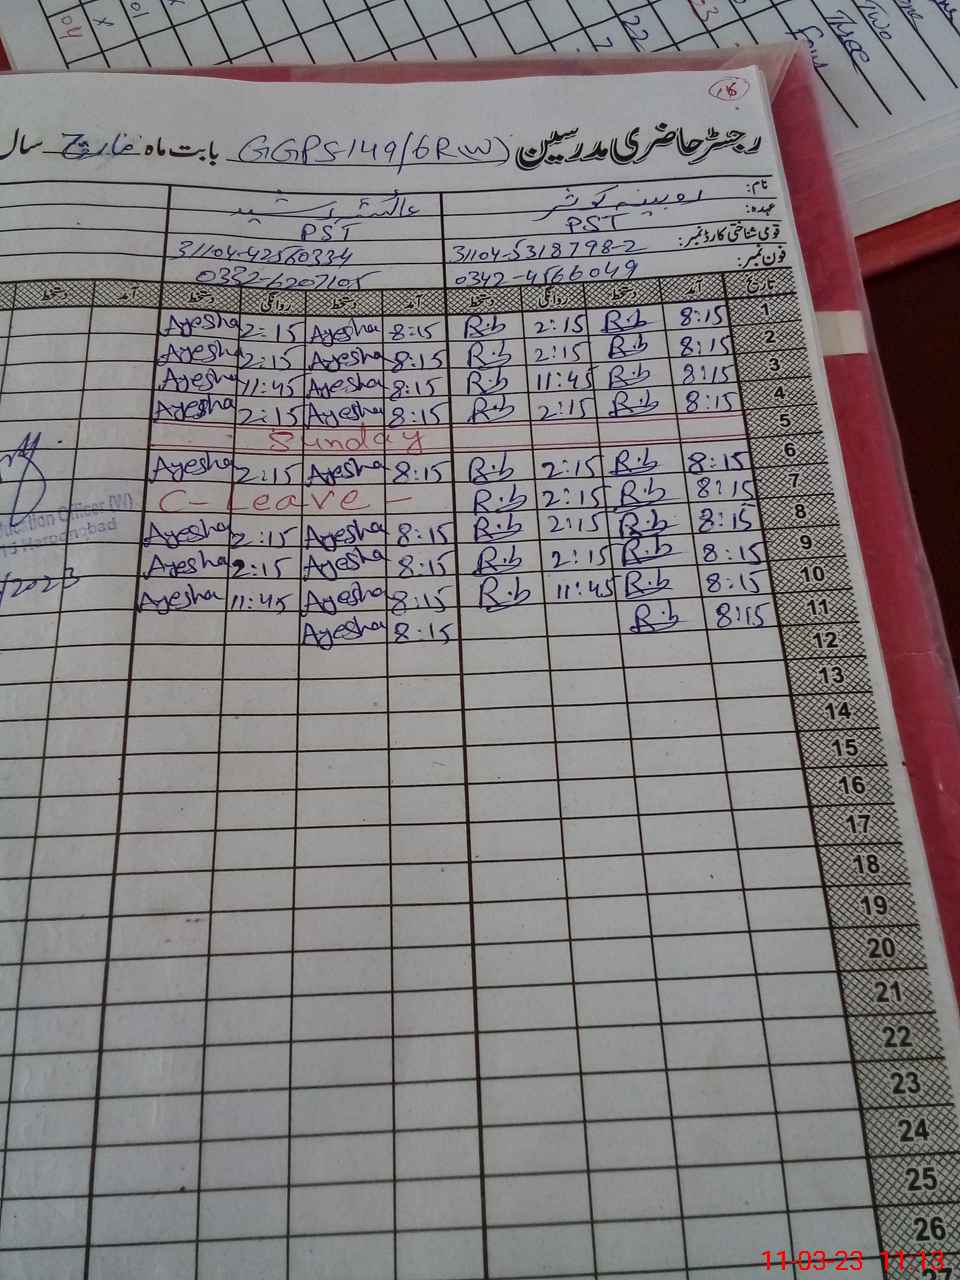 16
رجسٹر حاضری مدرسین GGPS 149/6R(W) بابت ماہ مارچ سال
نام: روبینہ کوثر عائشہ رشید
عہدہ: PST PST
قومی شناختی کارڈ نمبر: 31104-5318798-2 31104-42560334
فون نمبر: 0342-4566049 0332-6207105
تاریخ آمد دستخط روانگی دستخط آمد دستخط روانگی دستخط آمد دستخط
1 8:15 R.b 2:15 R.b 8:15 Ayesha 2:15 Ayesha
2 8:15 R.b 2:15 R.b 8:15 Ayesha 2:15 Ayesha
3 8:15 R.b 11:45 R.b 8:15 Ayesha 11:45 Ayesha
4 8:15 R.b 2:15 R.b 8:15 Ayesha 2:15 Ayesha
5 Sunday
6 8:15 R.b 2:15 R.b 8:15 Ayesha 2:15 Ayesha
7 8:15 R.b 2:15 R.b C-Leave-
8 8:15 R.b 2:15 R.b 8:15 Ayesha 2:15 Ayesha
9 8:15 R.b 2:15 R.b 8:15 Ayesha 2:15 Ayesha
10 8:15 R.b 11:45 R.b 8:15 Ayesha 11:45 Ayesha
11 8:15 R.b 8:15 Ayesha
12
13
14
15
16
17
18
19
20
21
22
23
24
25
26
27
Education Officer (W)
Haroonabad
/2023
Three
Two
Four
22
11-03-23 11:13